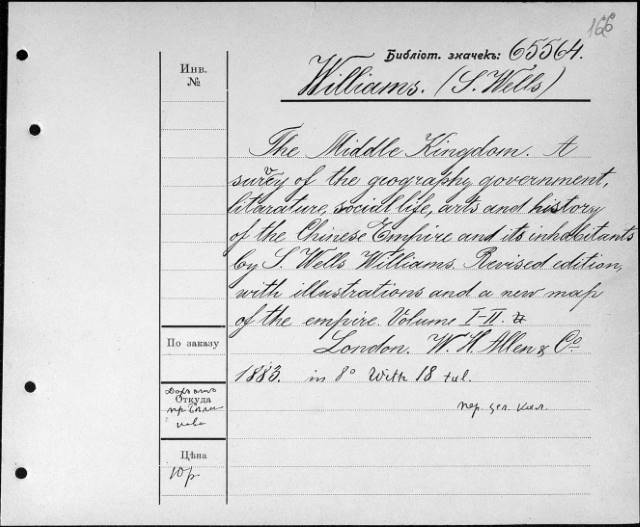 166
Библіот. значекъ: 65564.
Williams. (S. Wells)
Инв.
№
The Middle Kingdom. A
survey of the geography, government,
litarature, social life, arts and history
of the Chinese Empire and its inhabitants
by S. Wells Williams. Revised edition,
with illustrations and a new map
of the empire. Volume I-II.
London. W. H. Allen & Co.
1883. in 8° With 18 tal.
пер. цел. кол.
По заказу
Откуда
Цѣна
10р